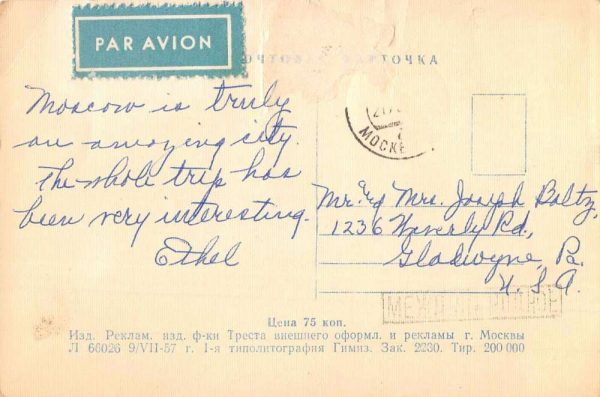 PAR AVION
ПОЧТОВАЯ КАРТОЧКА
Moscow is truly
an amazing city.
The whole trip has
been very interesting.
Ethel
МОСКВА
Mr. & Mrs. Joseph Boltz,
1236 Waverly Rd.,
Gladwyne, Pa.
U.S.A.
Цена 75 коп.
Изд. Реклам. изд. ф-ки Треста внешнего оформл. и рекламы г. Москвы
Л 66026 9/VII-57 г. 1-я типолитография Гимиз. Зак. 2230. Тир. 200 000